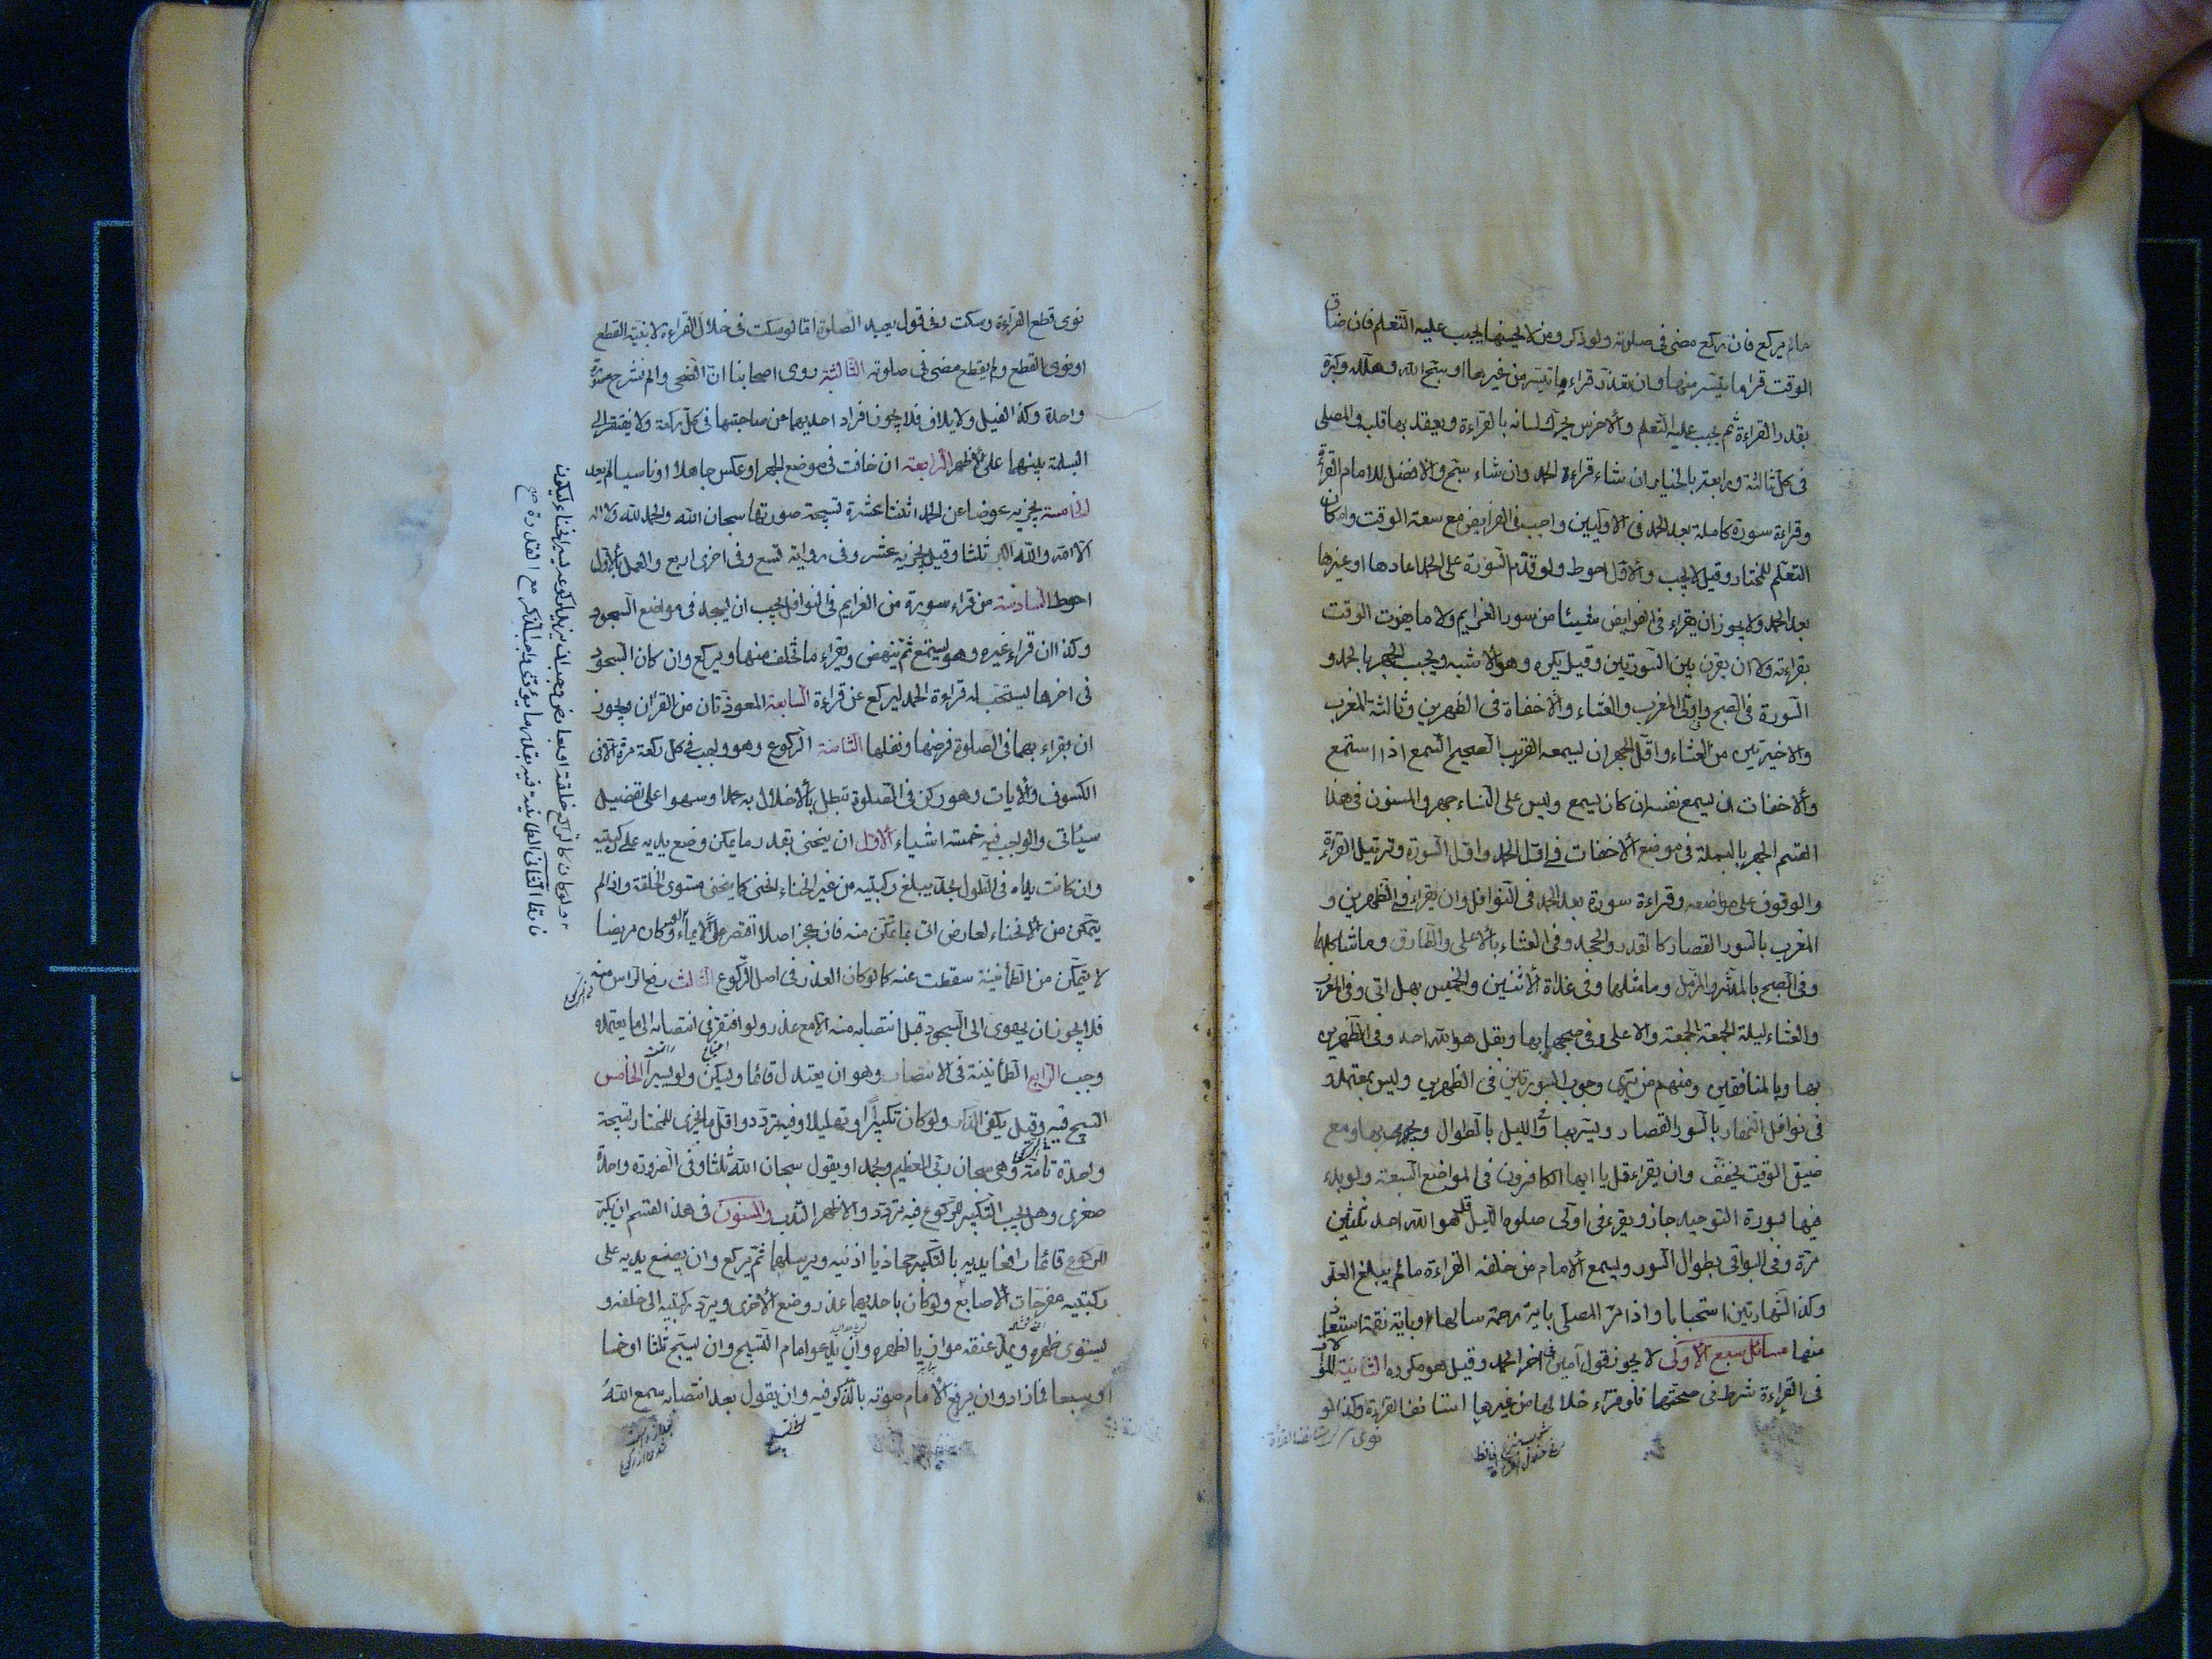 مالم يركع فان ركع مضى فى صلوته ولو ذكر ومن لا يحسنها يجب عليه التعلم فان ضاق
الوقت قرا ما تيسر منها وان تعذر قراء ما تيسر من غيرها او سبح الله وهلله وكبره
بقدر القراءة ثم يجب عليه التعلم والاخرس يحرك لسانه بالقراءة ويعقد بها قلبه والمصلى
فى كل ثالثة ورابعة بالخيار ان شاء قراءة الحمد وان شاء سبح والافضل للامام القراءة
وقراءة سورة كاملة بعد الحمد فى الاوليين واجب فى الفرايض مع سعة الوقت وامكان
التعلم للمختار وقيل لا يجب والاول احوط ولو قدم السورة على الحمد اعادها او غيرها
بعد الحمد ولا يجوز ان يقراء فى الفرايض شيئا من سور العزايم ولا ما يفوت الوقت
بقراءته ولا ان يقرن بين السورتين وقيل يكره وهو الاشبه ويجب الجهر بالحمد و
السورة فى الصبح واولتى المغرب والعشاء والاخفاة فى الظهرين وثالثة المغرب
والاخيرتين من العشاء واقل الجهر ان يسمعه القريب الصحيح السمع اذا استمع
والاخفات ان يسمع نفسه ان كان يسمع وليس على النساء جهر والمسنون فى هذا
القسم الجهر بالبسملة فى موضع الاخفات فى اول الحمد واول السورة وترتيل القراءة
والوقوف على مواضعه وقراءة سورة بعد الحمد فى النوافل وان يقراء فى الظهرين و
المغرب بالسور القصار كالقدر والجحد وفى العشاء بالاعلى والطارق وماشاكلهما
وفى الصبح بالمدثر والمزمل وماماثلهما وفى غداة الاثنين والخميس بهل اتى وفى المغرب
والعشاء ليلة الجمعة الجمعة والاعلى وفى صبحها بها وبقل هو الله احد وفى الظهرين
بها وبالمنافقين ومنهم من يرى وجوب السورتين فى الظهرين وليس بمعتمد و
فى نوافل النهار بالسور القصار ويسر بها وفى الليل بالطوال ويجهر بها ومع
ضيق الوقت يخفف وان يقراء قل يا ايها الكافرون فى المواضع السبعة ولو بدء
فيها بسورة التوحيد جاز ويقرء فى اولى صلوة الليل قل هو الله احد ثلثين
مرة وفى البواقى بطوال السور ويسمع الامام من خلفه القراءة مالم يبلغ العلو
وكذا الشهادتين استحبابا واذا مر المصلى باية رحمة سالها او باية نقمة استعاذ
منها مسائل سبع الاولى لا يجوز قول آمين آخر الحمد وقيل هو مكروه الثانية الموالاة
فى القراءة شرط فى صحتها فلو قراء خلالها من غيرها استانف القراءة وكذا لو
نوى قطع القراءة وسكت وفى قول يعيد الصلوة اما لو سكت فى خلال القراءة لا بنية القطع
او نوى القطع ولم يقطع مضى فى صلوته الثالثة روى اصحابنا ان الضحى والم نشرح سورة
واحدة وكذا الفيل ولايلاف فلا يجوز افراد احديهما من صاحبتها فى كل ركعة ولا يفتقر الى
البسملة بينهما على الاظهر الرابعة ان خافت فى موضع الجهر او عكس جاهلا او ناسيا لم يعد
الخامسة يجزيه عوضا عن الحمد اثنتا عشرة تسبيحة صورتها سبحان الله والحمد لله ولا اله
الا الله والله اكبر ثلثا وقيل يجزيه عشر وفى رواية تسع وفى اخرى اربع والعمل بالاول
احوط السادسة من قراء سورة من العزايم فى النوافل يجب ان يسجد فى مواضع السجود
وكذا ان قراء غيره وهو يستمع ثم ينهض ويقراء ماتخلف منها ويركع وان كان السجود
فى اخرها يستحب له قراءة الحمد ليركع عن قراءة السابعة المعوذتان من القران ويجوز
ان يقراء بهما فى الصلوة فرضها ونفلها الثامنة الركوع وهو واجب فى كل ركعة مرة الا فى
الكسوف والايات وهو ركن فى الصلوة تبطل بالاخلال به عمدا وسهوا على تفصيل
سياتى والواجب فيه خمسة اشياء الاول ان ينحنى بقدر ما يمكن وضع يديه على ركبتيه
وان كانت يداه فى الطول بحد يبلغ ركبتيه من غير انحناء انحنى كما ينحنى مستوى الخلقة واذا لم
يتمكن من الانحناء لعارض اتى بما تمكن منه فان عجز اصلا اقتصر على الايماء ولو كان مريضا
لا يتمكن من الطمأنينة سقطت عنه كما لو كان العذر فى اصل الركوع الثالث رفع الراس منه
فلا يجوز ان يهوى الى السجود قبل انتصابه منه الا مع عذر ولو افتقر فى انتصابه الى ما يعتمده
وجب الرابع الطمأنينة فى الانتصاب وهو ان يعتدل قائما ويسكن ولو يسيرا الخامس
التسبيح فيه وقيل يكفى الذكر ولو كان تكبيرا او تهليلا وفيه تردد واقل ما يجزى للمختار تسبيحة
واحدة تامة وهى سبحان ربى العظيم وبحمده او يقول سبحان الله ثلثا وفى الضرورة واحدة
صغرى وهل يجب التكبير للركوع فيه تردد والاظهر الندب والمسنون فى هذا القسم ان يكبر
للركوع قائما رافعا يديه بالتكبير محاذيا اذنيه ويرسلهما ثم يركع وان يضع يديه على
ركبتيه مفرجات الاصابع ولو كان باحديهما عذر وضع الاخرى ويرد ركبتيه الى خلفه و
يستوى ظهره ويمد عنقه موازيا لظهره وان يدعو امام التسبيح وان يسبح ثلثا او خمسا
او سبعا فمازاد وان يرفع الامام صوته بالذكر فيه وان يقول بعد انتصابه سمع الله
ولو كان كالراكع خلقة او لعارض وجب ان يزيد لركوعه يسير انحناء ليكون
فارقا الثانى الطمانينة فيه بقدر ما يؤدى واجب الذكر مع القدرة صح